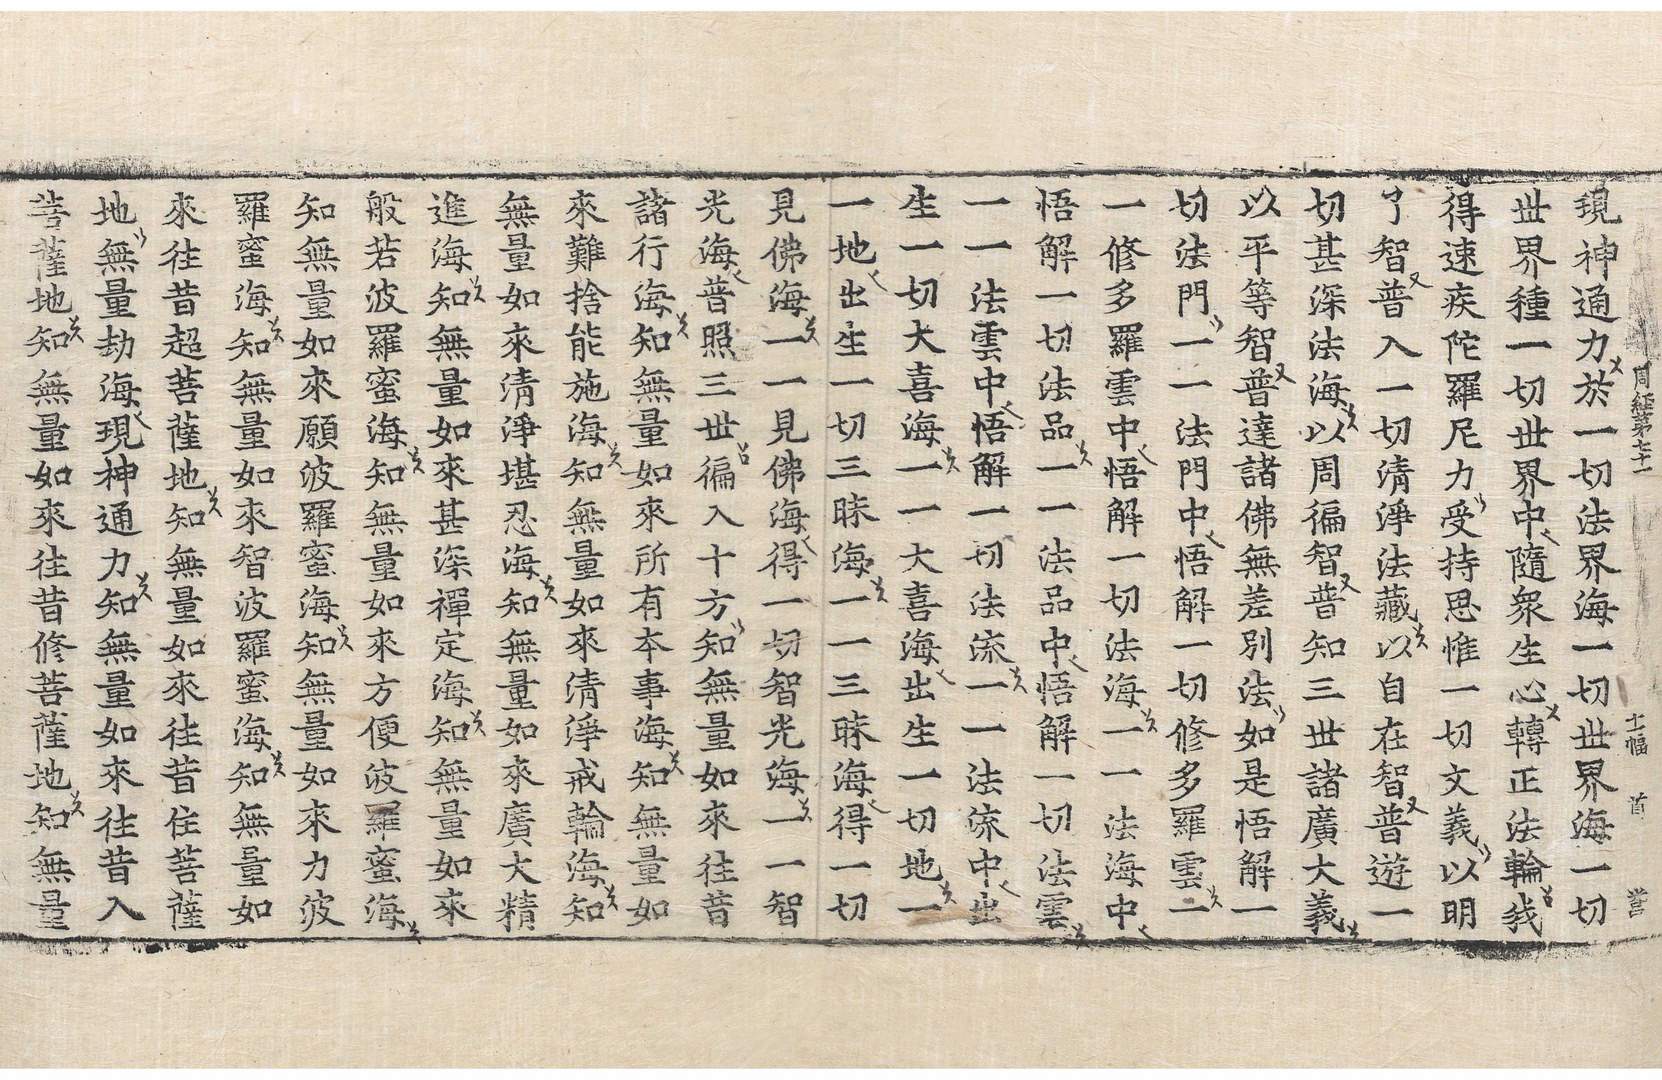 周經第七十一 十一幅 首
現神通力於一切法界海一切世界海一切
世界種一切世界中隨眾生心轉正法輪我
得速疾陀羅尼力受持思惟一切文義以明
了智普入一切清淨法藏以自在智普遊一
切甚深法海以周徧智普知三世諸廣大義
以平等智普達諸佛無差別法如是悟解一
切法門一一法門中悟解一切修多羅雲一
一修多羅雲中悟解一切法海一一法海中
悟解一切法品一一法品中悟解一切法雲
一一法雲中悟解一切法流一一法流中出
生一切大喜海一一大喜海出生一切地一
一地出生一切三昧海一一三昧海得一切
見佛海一一見佛海得一切智光海一一智
光海普照三世徧入十方知無量如來往昔
諸行海知無量如來所有本事海知無量如
來難捨能施海知無量如來清淨戒輪海知
無量如來清淨堪忍海知無量如來廣大精
進海知無量如來甚深禪定海知無量如來
般若波羅蜜海知無量如來方便波羅蜜海
知無量如來願波羅蜜海知無量如來力波
羅蜜海知無量如來智波羅蜜海知無量如
來往昔超菩薩地知無量如來往昔住菩薩
地無量劫海現神通力知無量如來往昔入
菩薩地知無量如來往昔修菩薩地知無量